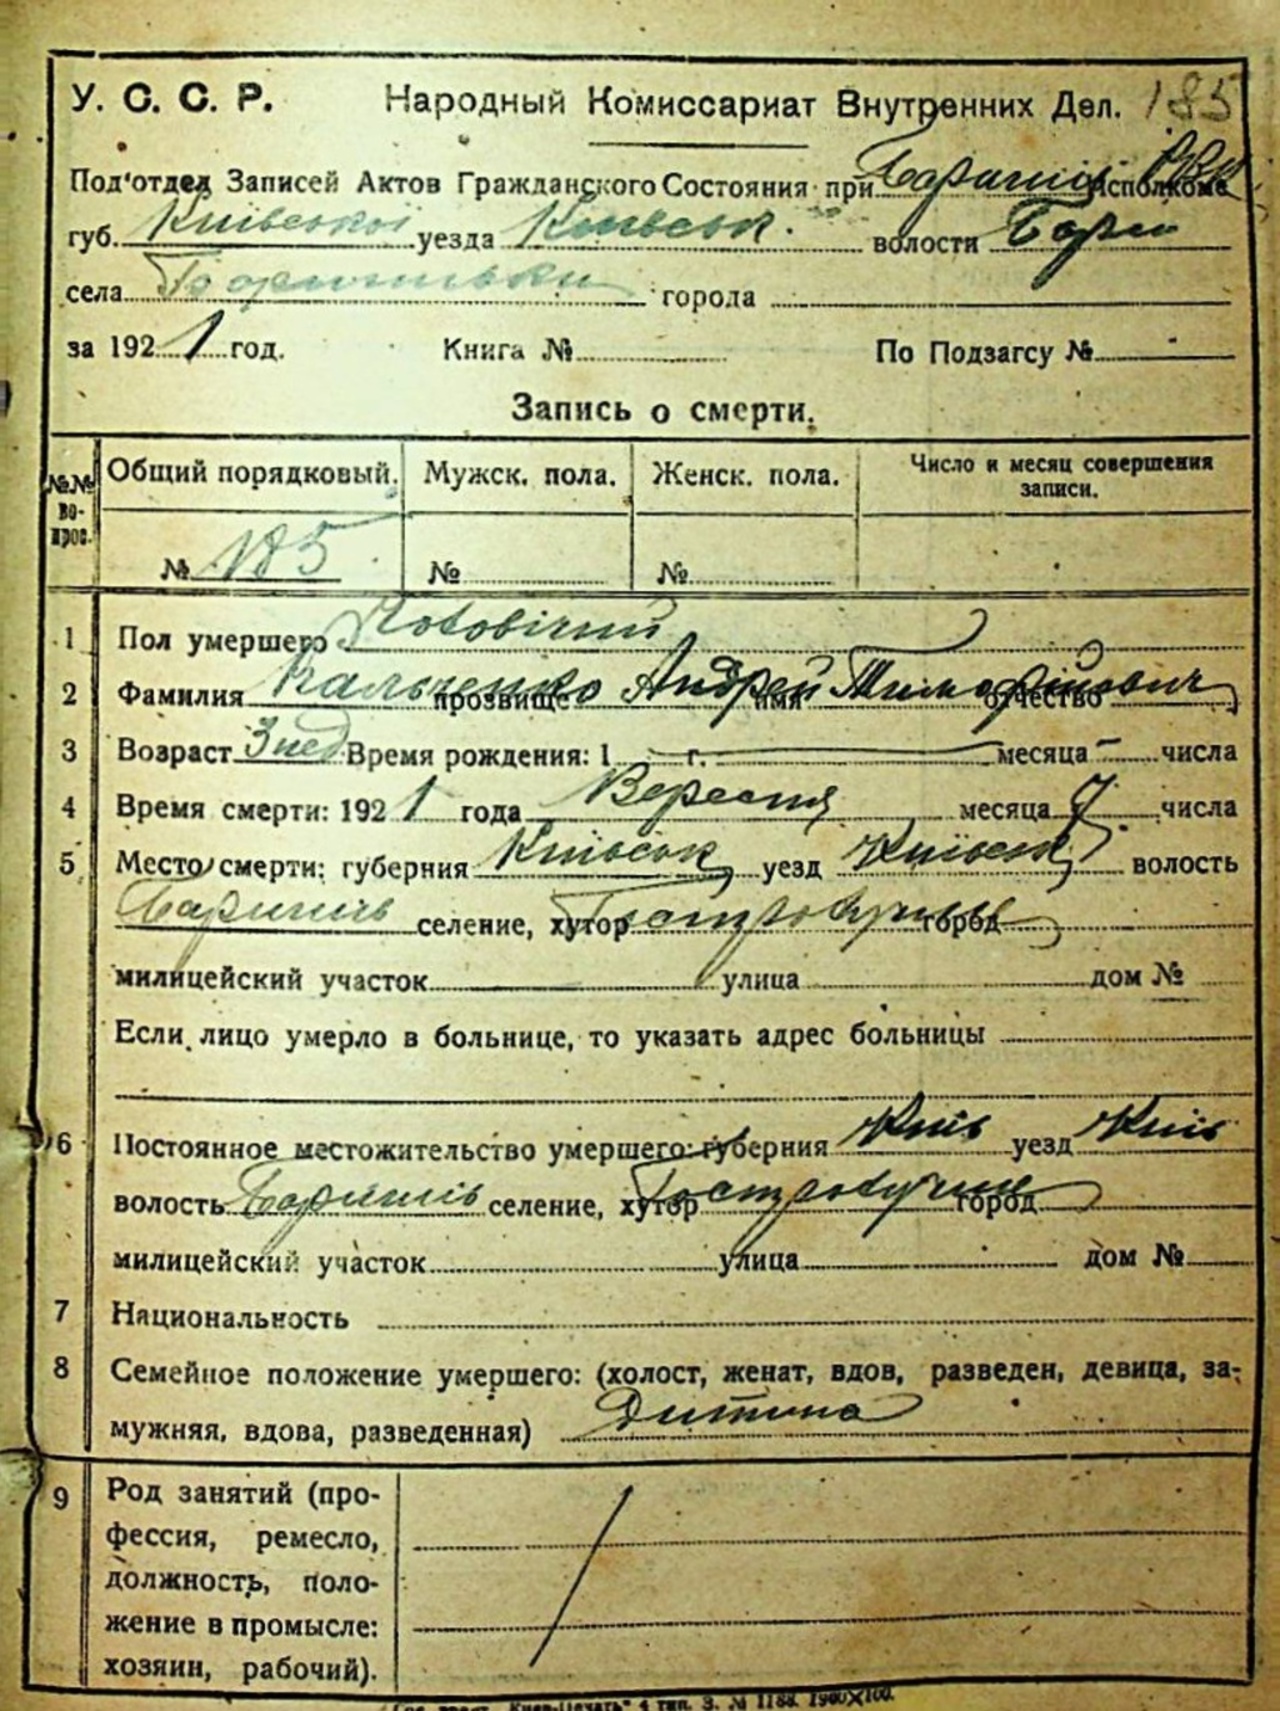 У. С. С. Р. Народный Комиссариат Внутренних Дел. 185
Под'отдел Записей Актов Гражданского Состояния при Баришів РВК Исполкоме
губ. Київської уезда Київськ. волости Бари
села города
за 1921 год. Книга № По Подзагсу №
Запись о смерти.
№№ вопрос. Общий порядковый. Мужск. пола. Женск. пола. Число и месяц совершения записи.
№ 185 № №
1 Пол умершего Чоловічий
2 Фамилия Кальченко прозвище Андрей имя Тимофійович отчество
3 Возраст 3 нед Время рождения: 1 г. месяца числа
4 Время смерти: 1921 года Вересня месяца 7 числа
5 Место смерти: губерния Київськ уезд Київськ волость
Баришів селение, хутор город
милицейский участок улица дом №
Если лицо умерло в больнице, то указать адрес больницы
6 Постоянное местожительство умершего: губерния Київ уезд Київ
волость Баришів селение, хутор город
милицейский участок улица дом №
7 Национальность
8 Семейное положение умершего: (холост, женат, вдов, разведен, девица, за-
мужняя, вдова, разведенная) Дитина
9 Род занятий (про-
фессия, ремесло,
должность, поло-
жение в промысле:
хозяин, рабочий).
"Киев-Печать" 4 тип. З. № 1188. 1900×100.